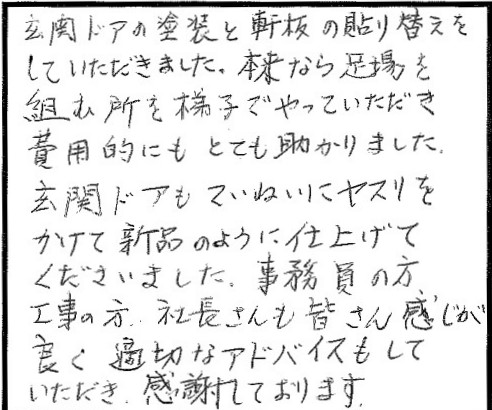 玄関ドアの塗装と軒板の貼り替えを
していただきました。本来なら足場を
組む所を梯子でやっていただき
費用的にもとても助かりました。
玄関ドアもていねいにヤスリを
かけて新品のように仕上げて
くださいました。事務員の方、
工事の方、社長さんも皆さん感じが
良く適切なアドバイスもして
いただき、感謝しております。